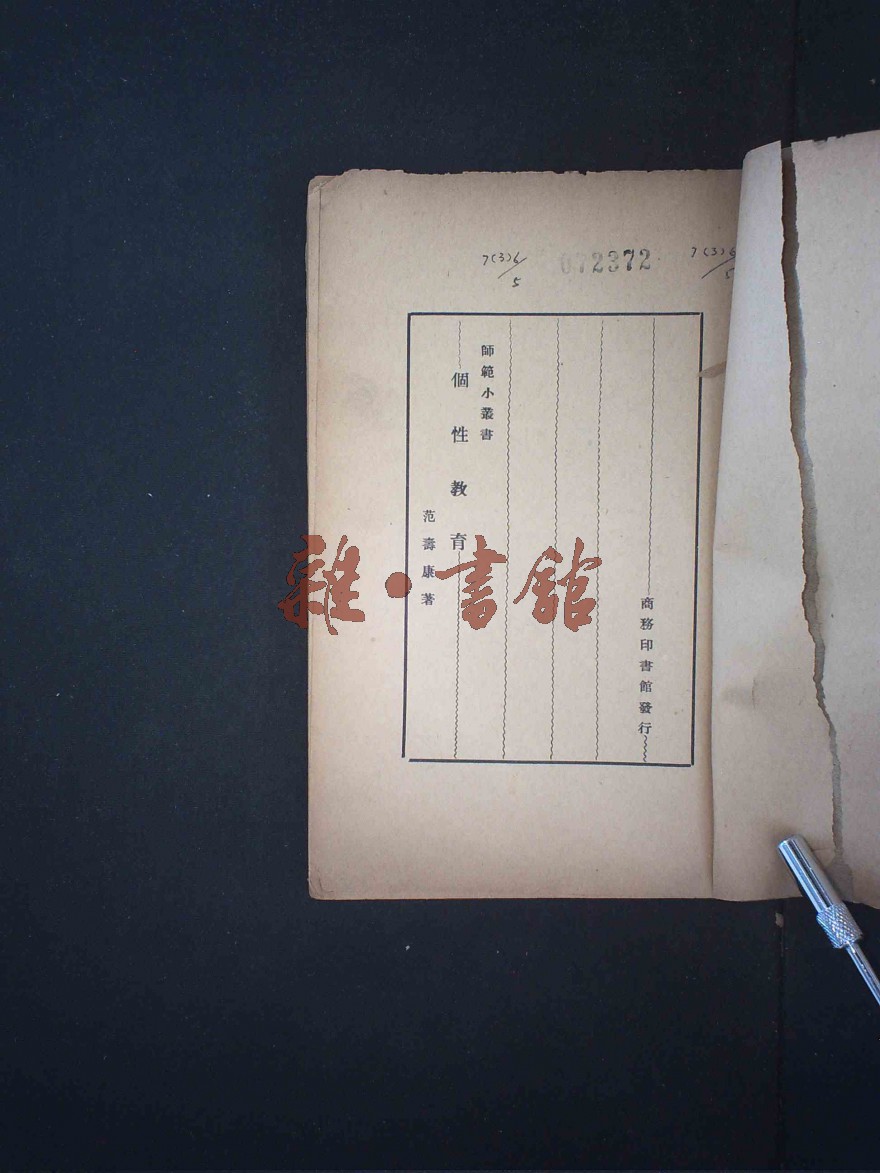 7(3)6/5
072372
7(3)6/5
師範小叢書
個性教育
范壽康著
商務印書館發行
雜·書館